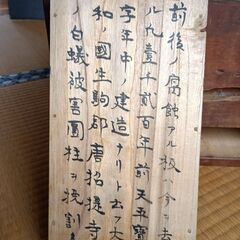 前後ノ腐蝕アル板ハ今ヲ去
ル凡壹千貳百年前天平寶
字年中ノ建造ナリト云フ大
和ノ國生駒郡唐招提寺
ノ白蟻被害圓柱ヲ挽割